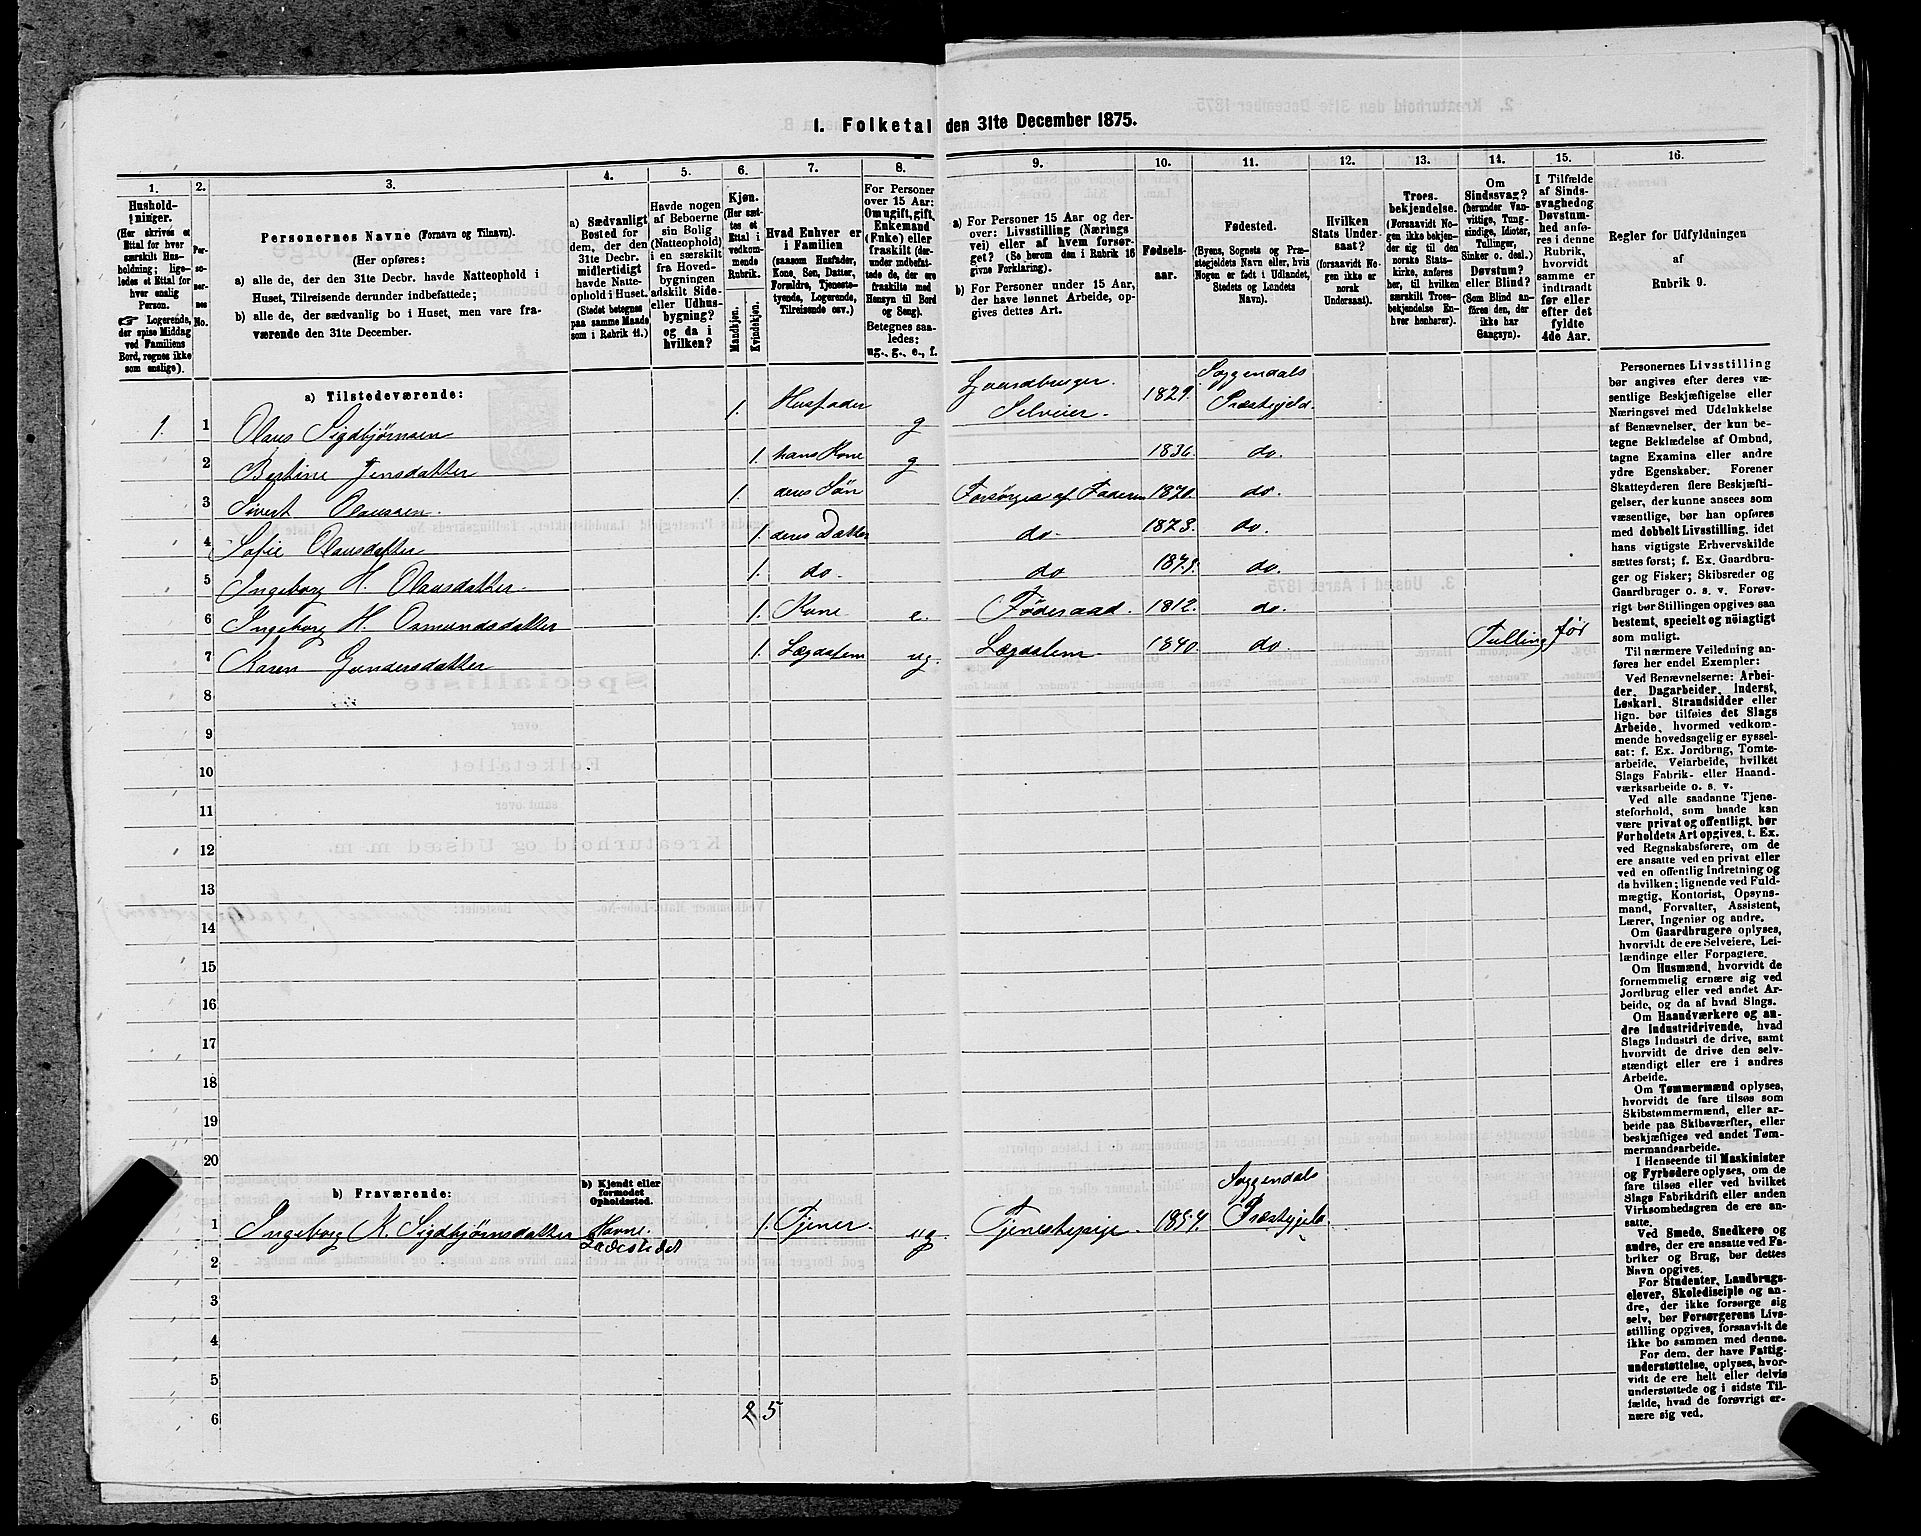 1. Folketal den 31te December 1875.
1. 2. 3. 4. 5. 6. 7. 8. 9. 10. 11. 12. 13. 14. 15. 16.
Hushold-
ninger.
(Her skrives et
Ettal for hver
særskilt Hus-
holdning; lige-
ledes et Ettal for
hver enslig
Person.
☞ Logerende,
der spise Middag
ved Familiens
Bord, regnes ikke
som enslige).
Per-
so-
ner-
nes
No.
Personernes Navne (Fornavn og Tilnavn).
(Her opføres:
a) alle de, der den 31te Decbr. havde Natteophold i
Huset, Tilreisende derunder indbefattede;
b) alle de, der sædvanlig bo i Huset, men vare fra-
værende den 31te December.
a) Sædvanligt
Bosted for
dem, der den
31te Decbr.
midlertidigt
havde Natte-
ophold i Huset.
(Stedet betegnes
paa samme Maade
som i Rubrik 11.)
Havde nogen
af Beboerne
sin Bolig
(Natteophold)
i en særskilt
fra Hoved-
bygningen
adskilt Side-
eller Udhus-
bygning?
og da i
hvilken?
Kjøn.
(Her sæt-
tes et
Ettal i
vedkom-
mende
Rubrik.
Mandkjøn.
Kvindekjøn.
Hvad Enhver er
i Familien
(saasom Husfader,
Kone, Søn, Datter,
Forældre, Tjeneste-
tyende, Logerende,
Tilreisende osv.)
For Personer
over 15 Aar:
Om ugift, gift,
Enkemand
(Enke) eller
fraskilt (der-
under indbefat-
tede de, der ere
fraskilte med
Hensyn til Bord
og Seng).
Betegnes saa-
ledes:
ug., g., e., f.
a) For Personer 15 Aar og der-
over: Livsstilling (Nærings
vei) eller af hvem forsør-
get? (Se herom den i Rubrik 16
givne Forklaring).
b) For Personer under 15 Aar,
der have lønnet Arbeide, op-
gives dettes Art.
Fødsels-
aar.
Fødested.
(Byens, Sognets og Præ-
stegjeldets Navn eller, hvis
Nogen er født i Udlandet,
Stedets og Landets
Navn).
Hvilken
Stats Under-
saat?
(foraavidt No-
gen ikke er
norsk
Undersaat).
Troes-
bekjendelse.
(Forsaavidt No-
gen ikke bekjen-
der sig til den
norske Stats-
kirke, anføres
her, til hvilken
særskilt Troes-
bekjendelse En-
hver henhører).
Om
Sindssvag?
(herunder Van-
vittige, Tung-
sindige, Idioter,
Tullinger,
Sinker o. desl.)
Døvstum?
eller Blind?
(Som Blind an-
føres den, der
ikke har
Gangsyn).
I Tilfælde
af Sinds-
svaghed og
Døvstum-
hed anfø-
res i denne
Rubrik,
hvorvidt
samme er
indtraadt
før eller
efter det
fyldte
4de Aar.
Regler for Udfyldningen
af
Rubrik 9.
a) Tilstedeværende:
1. 1 Olaus Sigbjørnsen 1. Husfader g Gaardbruger. Selveier. 1829. Soggendals Præstegjeld.
2 Bertine Jensdatter 1. hans Kone g 1836. do.
3 Sivert Olaussen. 1. deres Søn Forsørges af Faderen 1870. do.
4 Sofie Olausdatter 1. deres Datter do 1873. do.
5 Ingeborg H. Olausdatter. 1. do. do 1875. do.
6 Ingeborg H. Osmundsdatter 1. Kone e. Føderaad. 1812. do.
7 Karen Gundersdatter 1. Lægdslem ug. Lægdslem 1840. do. Tulling før
8
9
10
11
12
13
14
15
16
17
18
19
20
b) Fraværende:
b) Kjendt eller
formodet
Opholdssted.
1 Ingeborg K. Sigbjørnsdatter Havne Ladestedet 1. Tjener. ug Tjenestepige. 1854. Soggendals Præstegjeld
2
3
4
5
6
2 5
Personernes Livsstilling
bør angives efter deres væ-
sentlige Beskjæftigelse eller
Næringsvei med Udelukkelse
af Benævnelser, der kun be-
tegne Beklædelse af Ombud,
tagne Examina eller andre
ydre Egenskaber. Forener
Skatteyderen flere Beskjæfti-
gelser, der kunne ansees som
væsentlige, bør han opføres
med dobbelt Livsstilling, idet
hans vigtigste Erhvervskilde
sættes først; f. Ex. Gaardbru-
ger og Fisker; Skibsreder og
Gaardbruger o. s. v. Forøv-
rigt bør Stillingen opgives saa
bestemt, specielt og nöiagtigt
som muligt.
Til nærmere Veiledning an-
føres her endel Exempler:
Ved Benævnelserne: Arbei-
der, Dagarbeider, Inderst,
Løskarl, Strandsidder eller
lign. bør tilføies det Slags
Arbeide, hvormed vedkom-
mende hovedsagelig er syssel-
sat: f. Ex. Jordbrug, Tomte-
arbeide, Veiarbeide, hvilket
Slags Fabrik- eller Haand-
værksarbeide o. s. v.
Ved alle saadanne Tjene-
steforhold, som baade kan
være privat og offentligt, bør
Forholdets Art opgives, t. Ex.
ved Regnskabsførere, om de
ere ansatte ved en privat eller
ved en offentlig Indretning og
da hvilken; lignende ved Fuld-
mægtig, Kontorist, Opsyns-
mand, Forvalter, Assistent,
Lærer, Ingeniør og andre.
Om Gaardbrugere oplyses,
hvorvidt de ere Selveiere, Lei-
lændinge eller Forpagtere.
Om Husmænd, hvorvidt de
fornemmelig ernære sig ved
Jordbrug eller ved andet Ar-
beide, og da af hvad Slags.
Om Haandværkere og an-
dre Industridrivende, hvad
Slags Industri de drive, samt
hvorvidt de drive den selv-
stændigt eller ere i andres
Arbeide.
Om Tømmermænd oplyses,
hvorvidt de fare tilsøs som
Skibstømmermænd, eller ar-
beide paa Skibsværfter, eller
beskjæftiges ved andet Tøm-
mermandsarbeide.
I Henseende til Maskinister
og Fyrbødere oplyses, om de
fare tilsøs eller ved hvilket
Slags Fabrikdrift eller anden
Virksomhedsgren de ere an-
satte.
Ved Smede, Snedkere og
andre, der ere ansatte ved Fa-
briker og Brug, bør dettes
Navn opgives.
For Studenter, Landbrugs-
elever, Skoledisciple og an-
dre, der ikke forsørge sig
selv, bør Forsørgerens Livs-
stilling opgives, forsaavidt de
ikke bo sammen med denne.
For dem, der have Fattig-
understøttelse, oplyses, hvor-
vidt de ere helt eller delvis
understøttede og i sidste Til-
fælde, hvad de forøvrigt er-
nære sig ved.